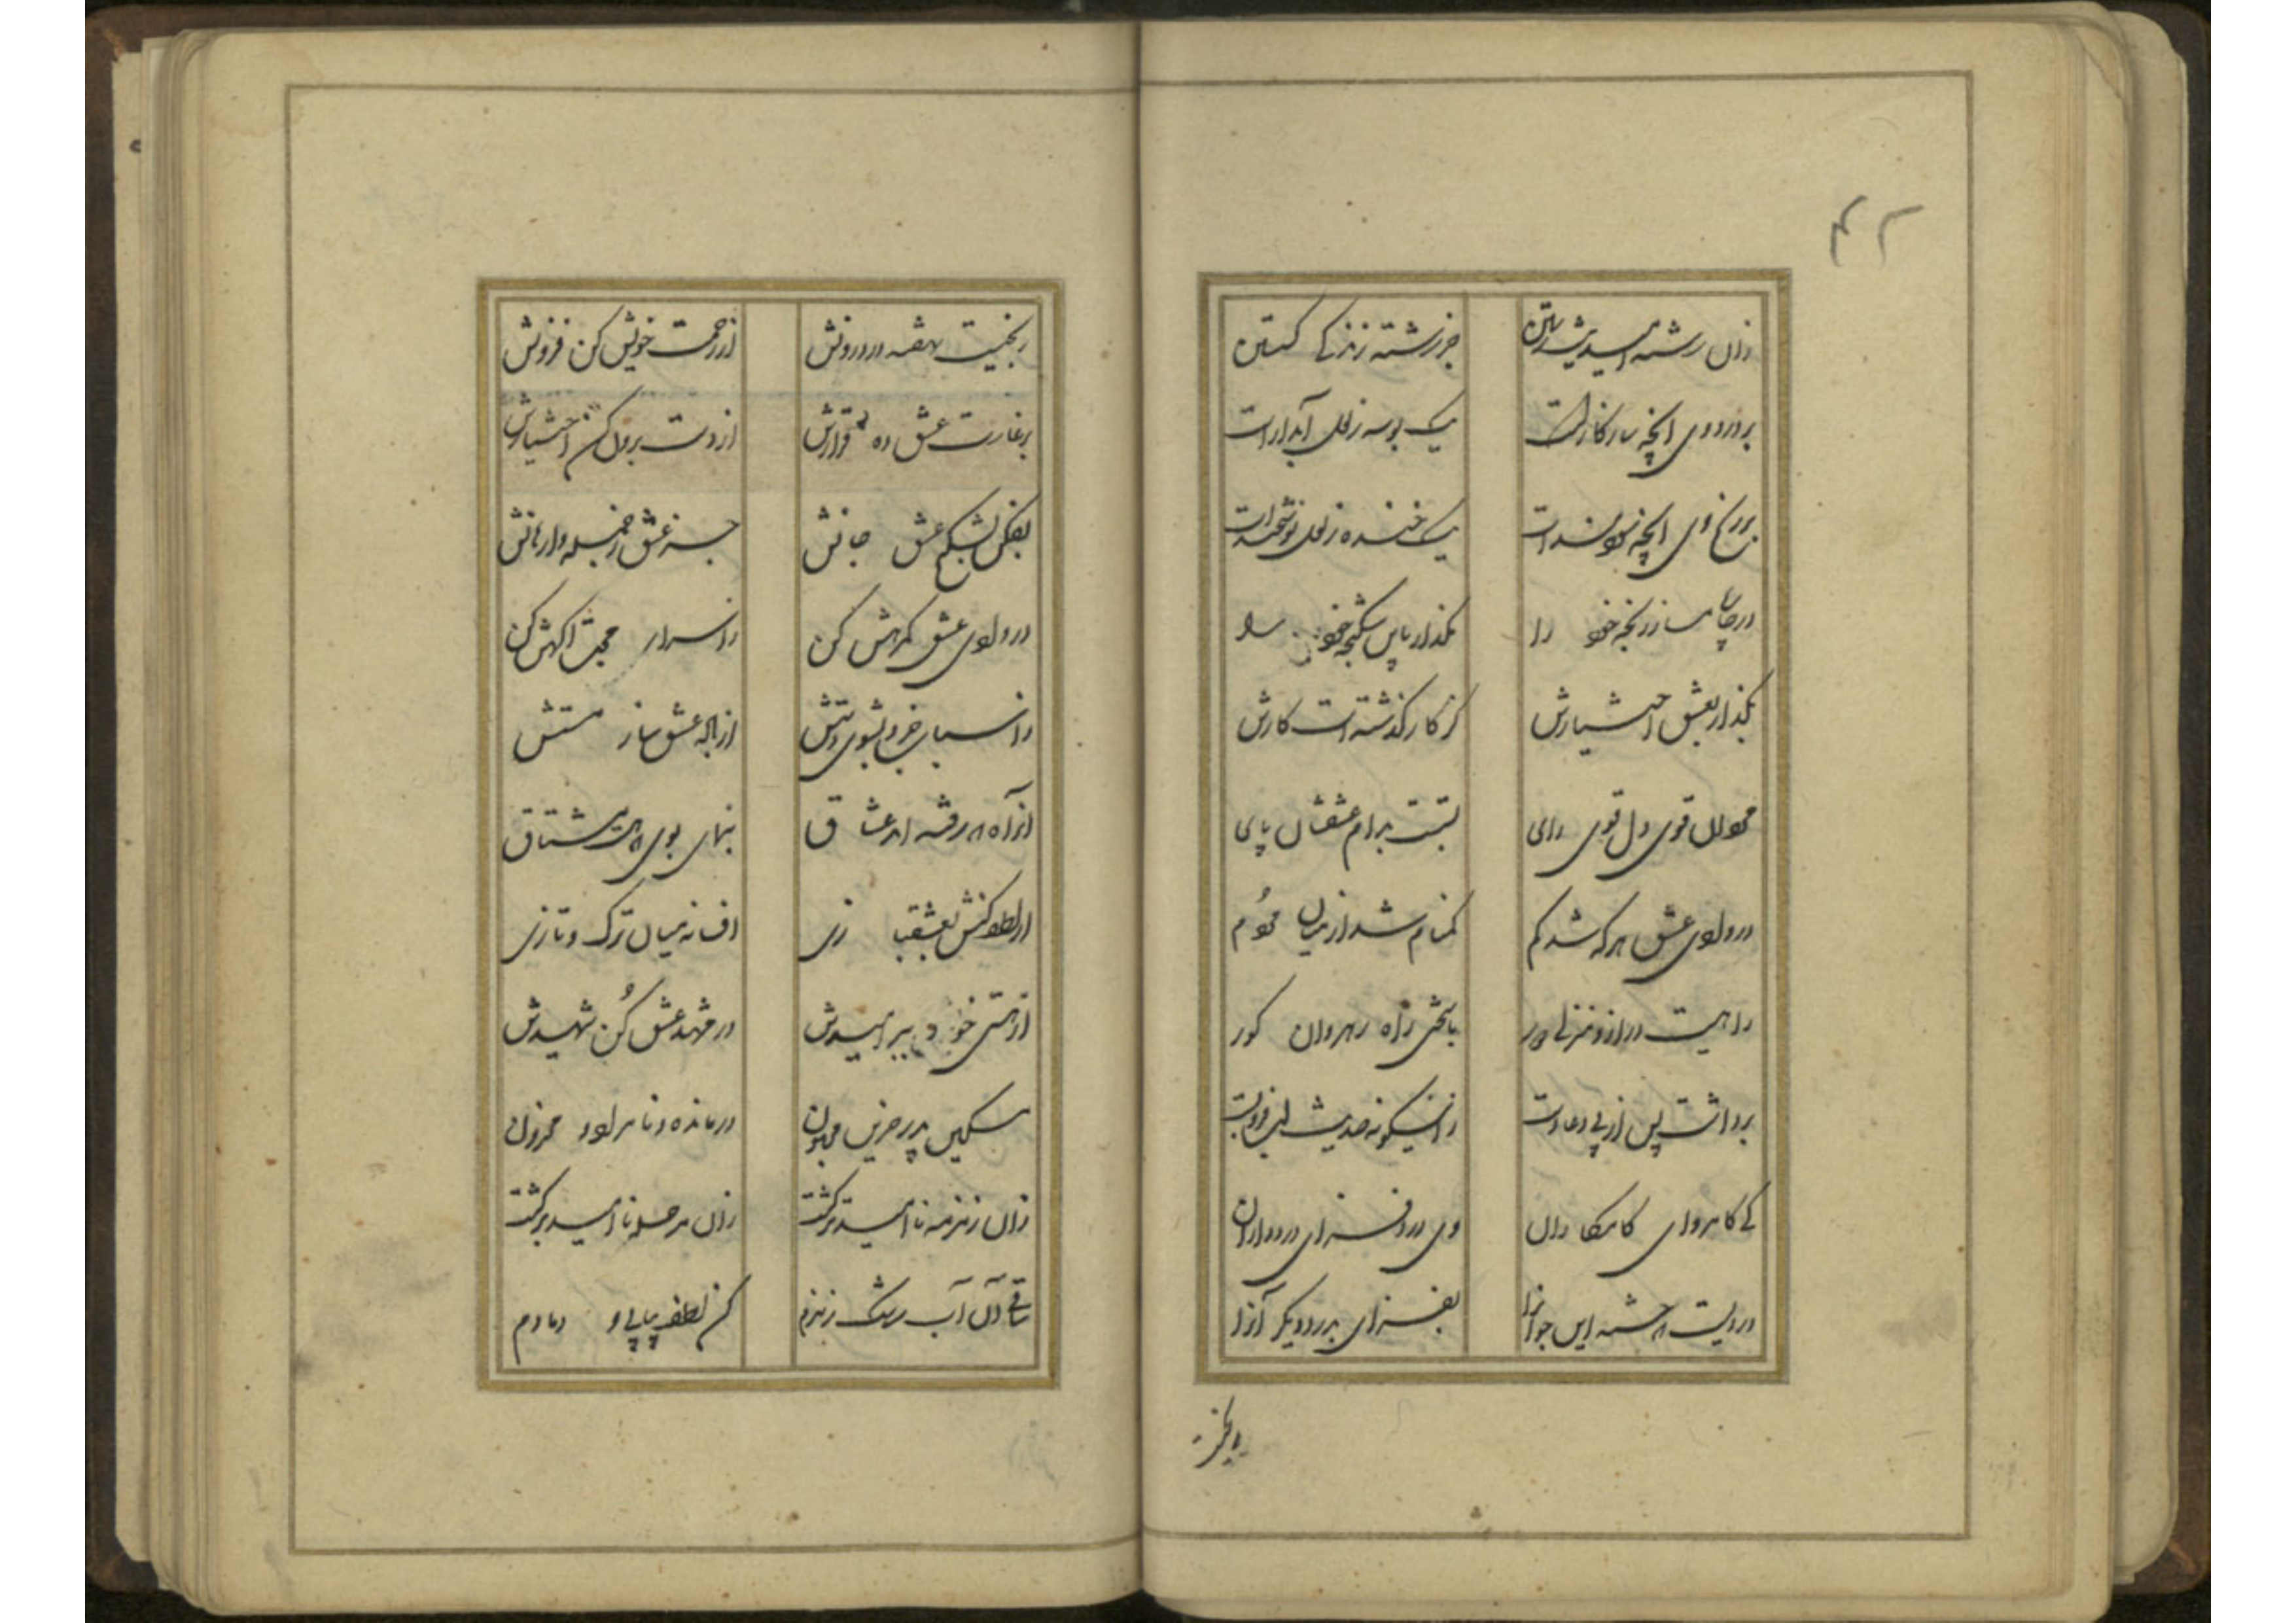 ۴۲
زان رشته امید
جز رشته زندگی گسستن
بر درد وی آنچه سازگار است
یک بوسه ز لعل آبدار است
بر رنج وی آنچه سودمند است
یک خنده ز لعل نوشخند است
در چاره مساز رنجه خود را
بگذار بعشق اختیارش
کز کار گذشته است کارش
قوی دل قوی رای
بدام عشقشان پای
در وادی عشق هر که شد گم
گمنام شد از میان مردم
راهیست دراز و منزلی دور
راه رهروان کور
برداشت پس از پی دعا دست
زاینگونه حدیث لب فرو بست
کی کامروای کامکاران
وی درد فزای دردداران
دردیست این جوانرا
بفزای بدرد دیگر آنرا
ریخت
از رحمت خویش کن فزونش
بر غارت عشق ده قرارش
از دست برون کن اختیارش
بفکن بشکنج عشق جانش
جز عشق ز جمله وارهانش
در وادی عشق گمرهش کن
ز اسرار محبت آگهش کن
ز اسباب خرد بشوی دستش
از باده عشق ساز مستش
عشاق
بنمای بوی مشتاق
بعشقبازی
افسانه میان ترک و تازی
از هستی خود ببر امیدش
در مشهد عشق کن شهیدش
مسکین پدر حزین مجنون
درمانده و نامراد و محزون
زان زمزمه ناامید برگشت
زان مرحله ناامید برگشت
ساقی آن آب رشک زمزم
کن لطف پیاپی و دمادم